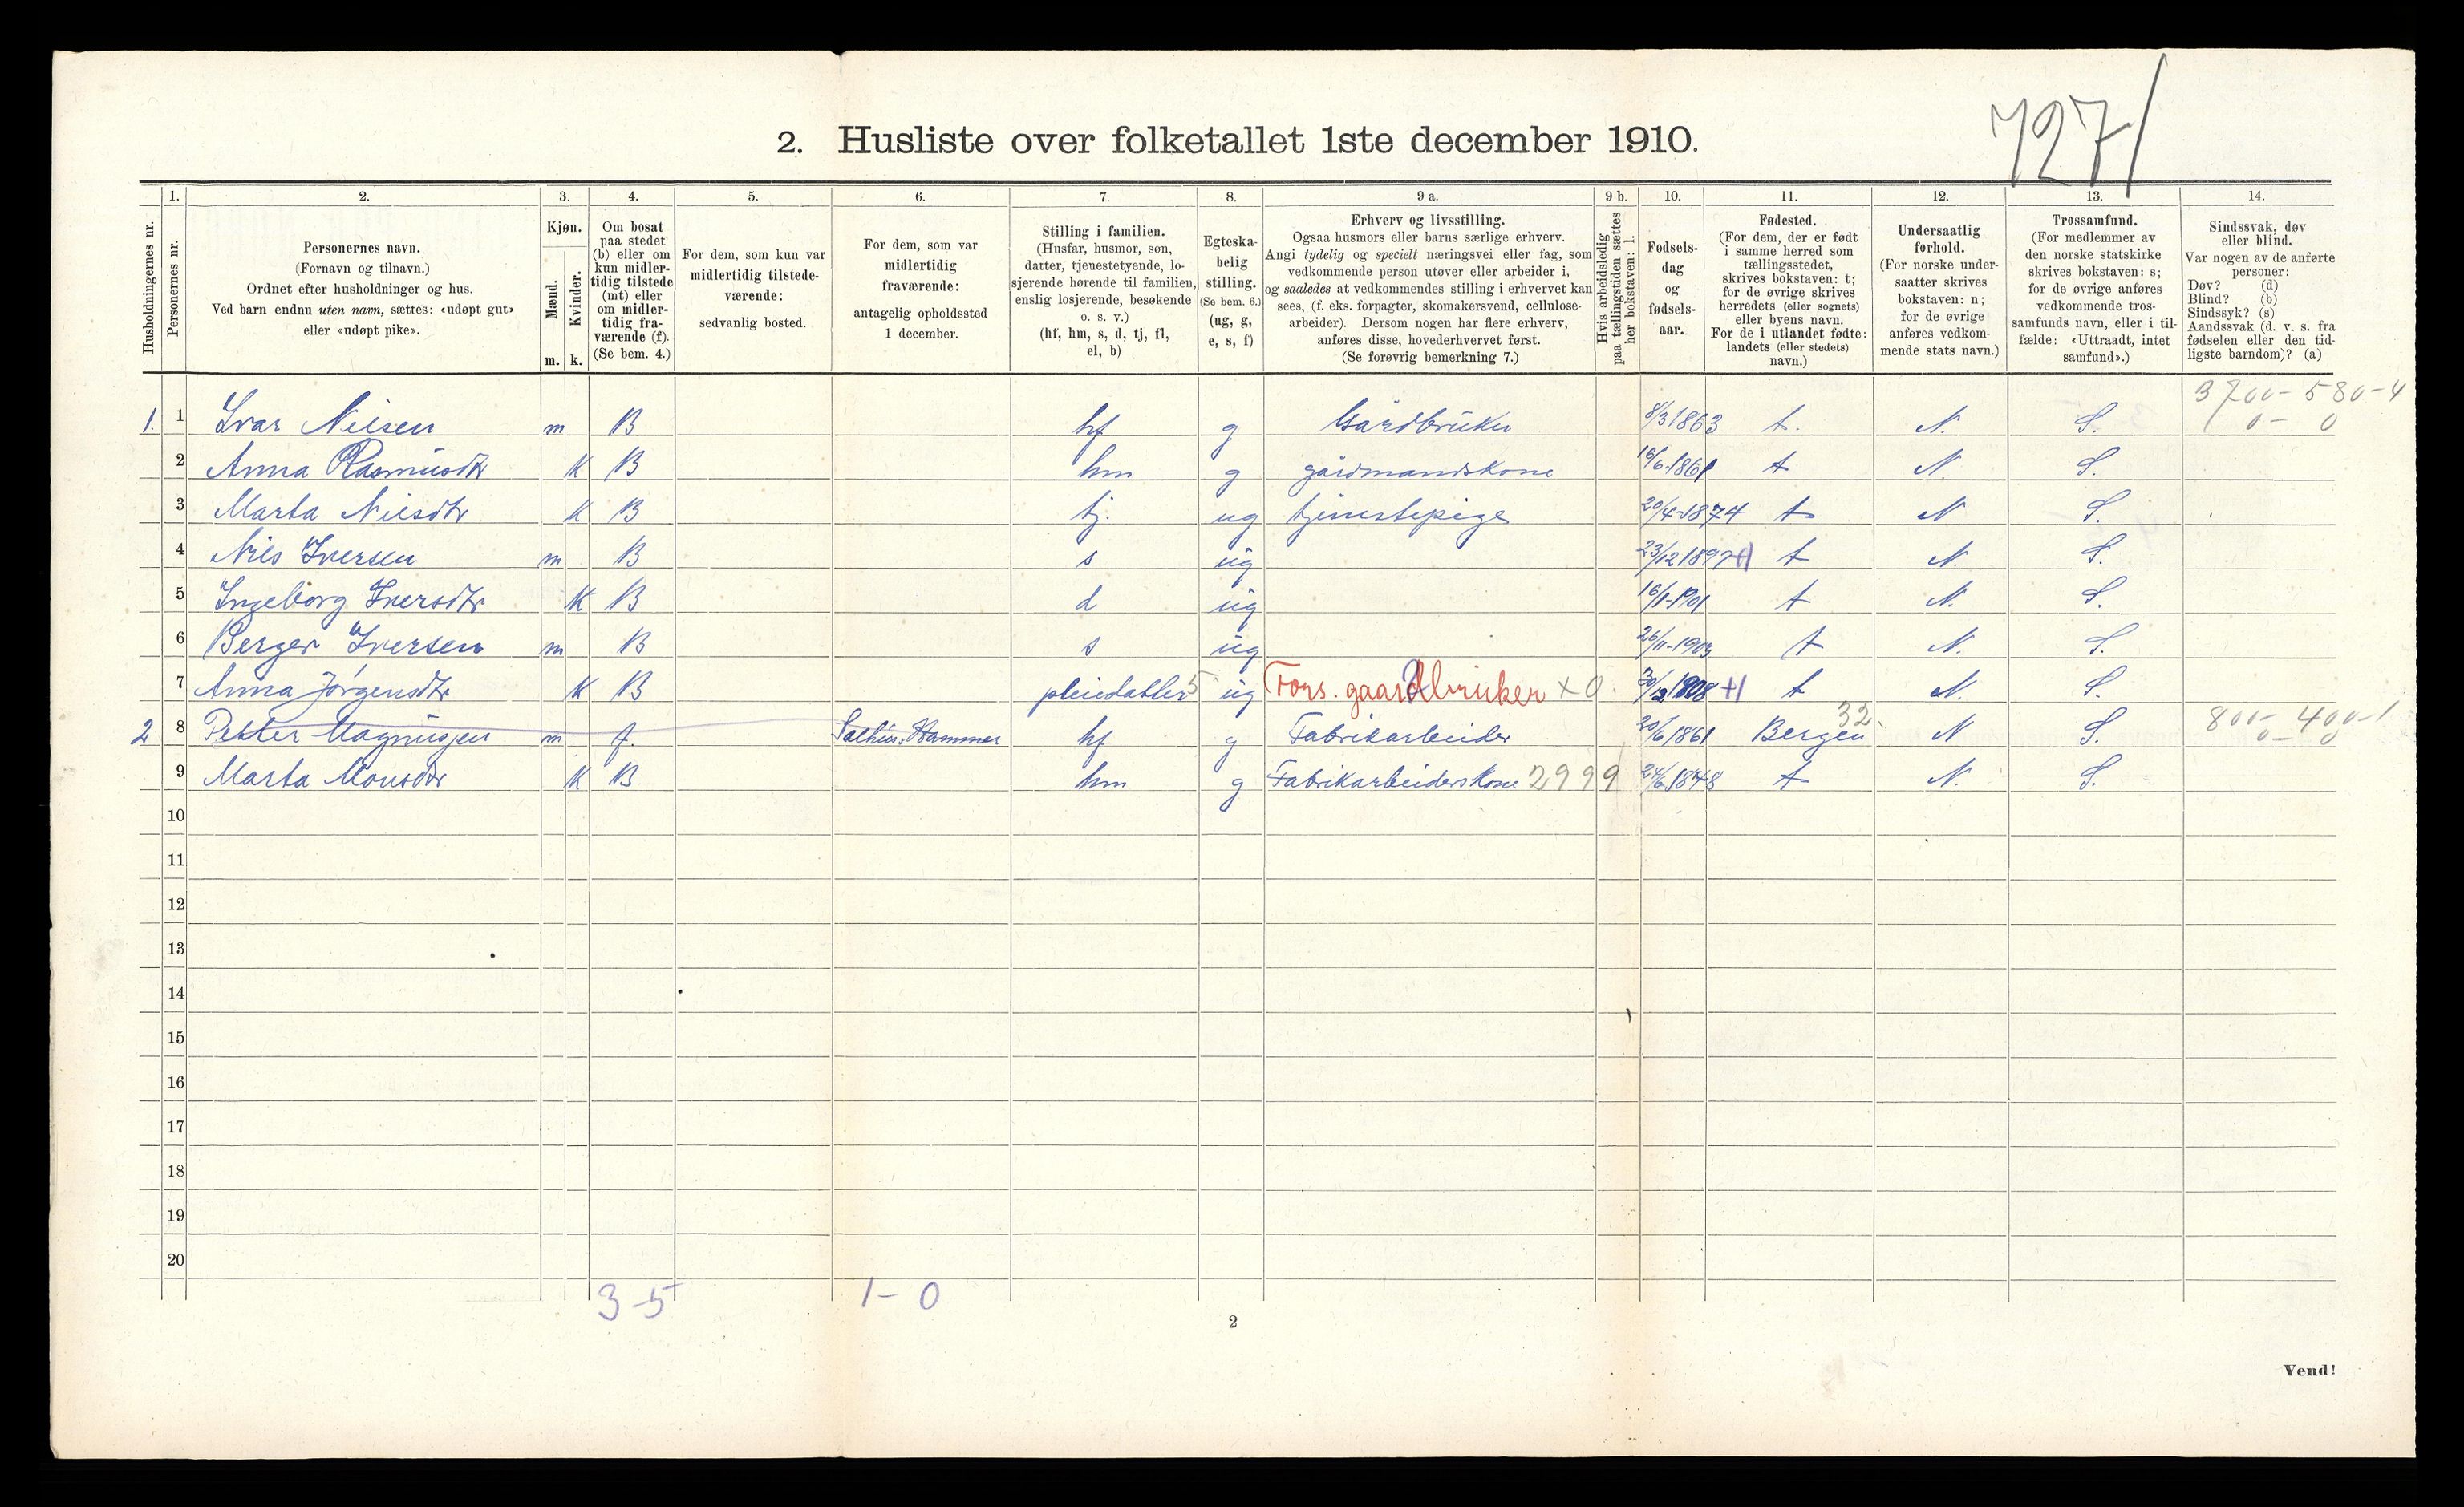 727/
2. Husliste over folketallet 1ste december 1910.
Husholdningernes nr.
1.
Personernes nr.
2.
Personernes navn.
(Fornavn og tilnavn.)
Ordnet efter husholdninger og hus.
Ved barn endnu uten navn, sættes: «udøpt gut»
eller «udøpt pike».
3.
Kjøn.
Mænd.
m.
Kvinder.
k.
4.
Om bosat
paa stedet
(b) eller om
kun midler-
tidig tilstede
(mt) eller
om midler-
tidig fra-
værende (f).
(Se bem. 4.)
5.
For dem, som kun var
midlertidig tilstede-
værende:
sedvanlig bosted.
6.
For dem, som var
midlertidig
fraværende:
antagelig opholdssted
1 december.
7.
Stilling i familien.
(Husfar, husmor, søn,
datter, tjenestetyende, lo-
sjerende hørende til familien,
enslig losjerende, besøkende
o. s. v.)
(hf, hm, s, d, tj, fl,
el, b)
8.
Egteska-
belig
stilling.
(Se bem. 6.)
(ug, g,
e, s, f)
9 a.
Erhverv og livsstilling.
Ogsaa husmors eller barns særlige erhverv.
Angi tydelig og specielt næringsvei eller fag, som
vedkommende person utøver eller arbeider i,
og saaledes at vedkommendes stilling i erhvervet kan
sees, (f. eks. forpagter, skomakersvend, cellulose-
arbeider). Dersom nogen har flere erhverv,
anføres disse, hovederhvervet først.
(Se forøvrig bemerkning 7.)
9 b.
Hvis arbeidsledig
paa tællingstiden sættes
her bokstaven: l.
10.
Fødsels-
dag
og
fødsels-
aar.
11.
Fødested.
(For dem, der er født
i samme herred som
tællingsstedet,
skrives bokstaven: t;
for de øvrige skrives
herredets (eller sognets)
eller byens navn.
For de i utlandet fødte:
landets (eller stedets)
navn.)
12.
Undersaatlig
forhold.
(For norske under-
saatter skrives
bokstaven: n;
for de øvrige
anføres vedkom-
mende stats navn.)
13.
Trossamfund.
(For medlemmer av
den norske statskirke
skrives bokstaven: s;
for de øvrige anføres
vedkommende tros-
samfunds navn, eller i til-
fælde: «Uttraadt, intet
samfund».)
14.
Sindssvak, døv
eller blind.
Var nogen av de anførte
personer:
Døv? (d)
Blind? (b)
Sindssyk? (s)
Aandssvak (d. v. s. fra
fødselen eller den tid-
ligste barndom)? (a)
3700-580-4
1. 1 Ivar Nilsen m B hf g Gårdbruker 8/3 1863 t. N. S. 0 - 0
2 Anna Rasmusdtr K B hm g gårdmandskone 16/6-1861 t N. S.
3 Marta Nilsdtr K B tj. ug tjenestepige 20/4-1874 t N S.
4 Nils Iversen m B s ug 23/12 1897 t N. S.
5 Ingeborg Iversdtr K B d ug 16/1-1901 t N. S.
6 Berger Iversen m B s ug 26/11-1903 t N. S.
7 Anna Jørgensdtr K B pleiedatter 5 ug Fors. gaardbruker x 0. 30/12 1908 t N. S.
32. 800 - 400-1
2 8 Petter Magnussen m f. Salhus, Hammer hf g Fabrikarbeider 20/6 1861 Bergen N S. 0 - 0
9 Marta Monsdtr K B hm g Fabrikarbeiderskone 2999 24/6 1848 t N. S.
10
11
12
13
14
15
16
17
18
19
20
3-5 1-0
2
Vend!